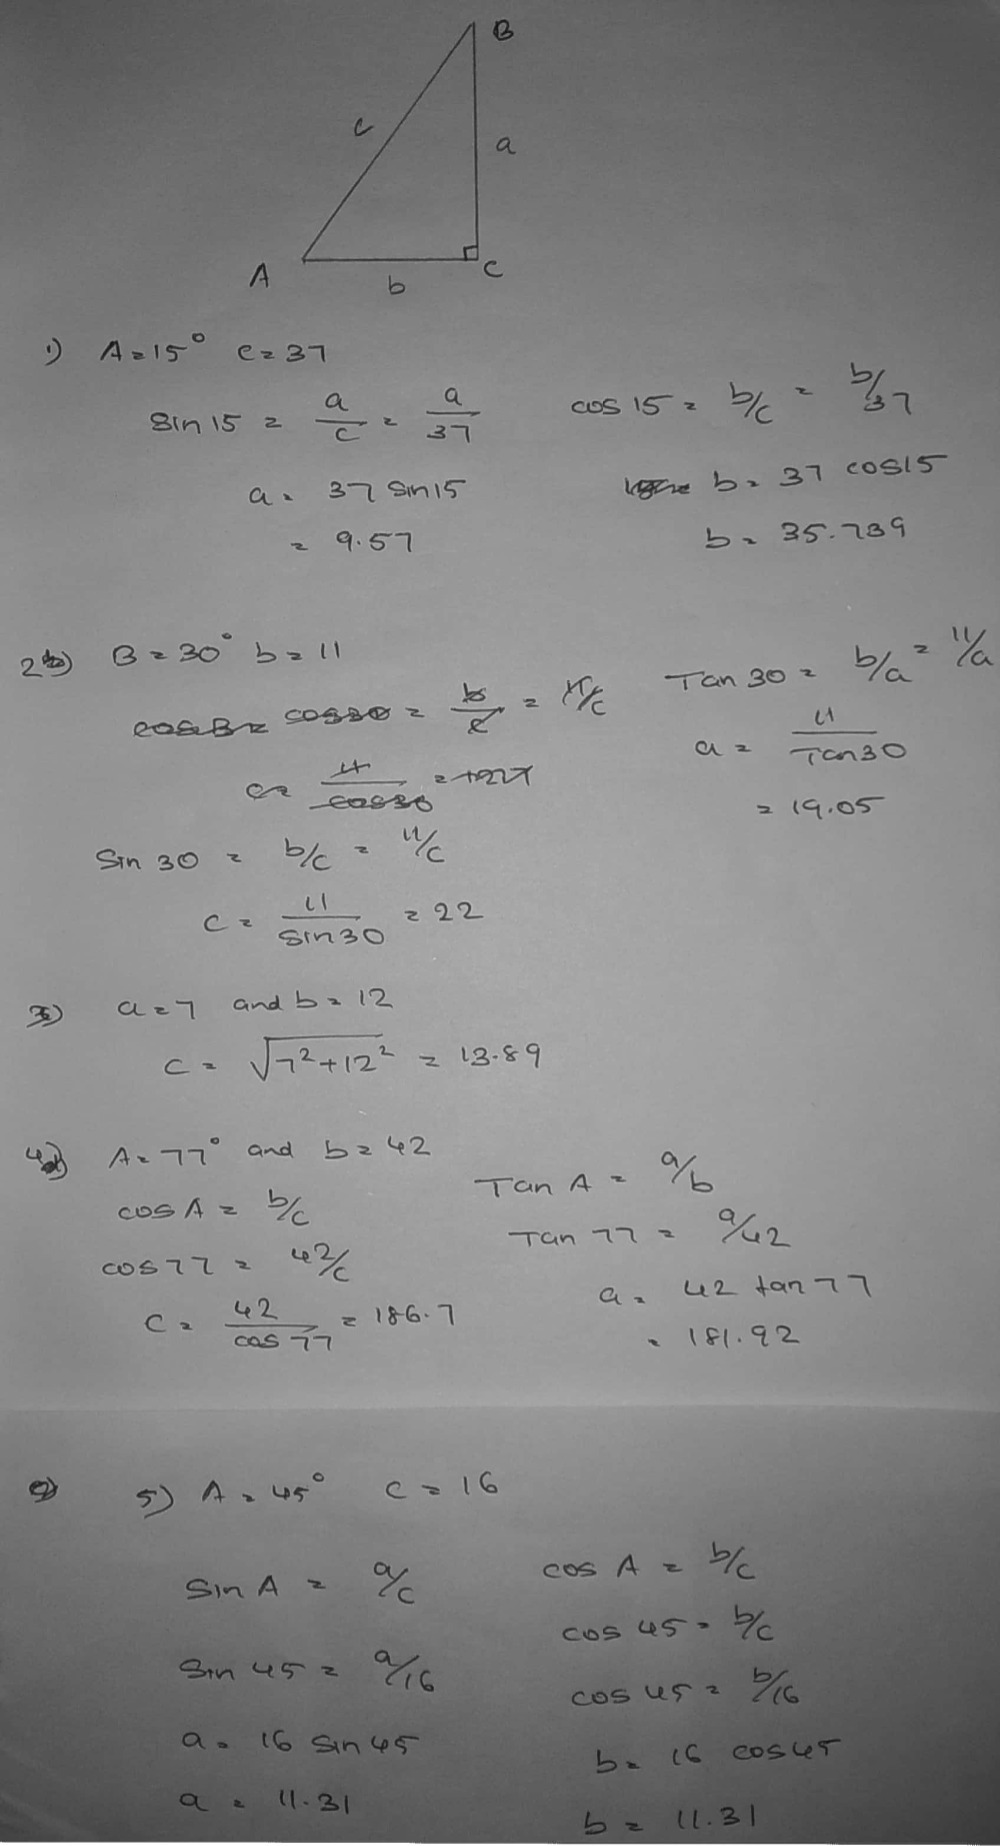 B
c
a
A
b
C
1) A = 15° c = 37
sin 15 = a/c = a/37
a = 37 sin 15
= 9.57
cos 15 = b/c = b/37
b = 37 cos15
b = 35.739
2) B = 30° b = 11
cosB = cos30 = b/c = 11/c
c = 11/cos30 = 12.7
sin 30 = b/c = 11/c
c = 11/sin30 = 22
Tan 30 = b/a = 11/a
a = 11/Tan30
= 19.05
3) a = 7 and b = 12
c = √7²+12² = 13.89
4) A = 77° and b = 42
cos A = b/c
cos 77 = 42/c
c = 42/cos 77 = 186.7
Tan A = a/b
Tan 77 = a/42
a = 42 tan 77
= 181.92
5) A = 45° c = 16
sin A = a/c
sin 45 = a/16
a = 16 sin 45
a = 11.31
cos A = b/c
cos 45 = b/c
cos 45 = b/16
b = 16 cos45
b = 11.31